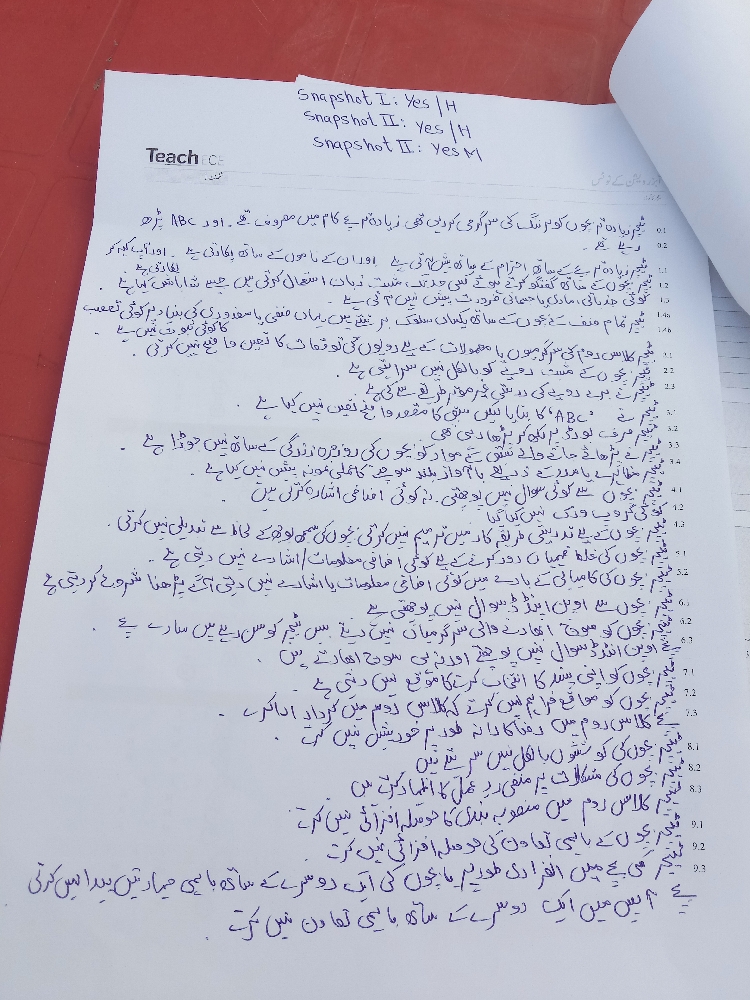 Snapshot I: Yes | H
Snapshot II: Yes | H
Snapshot II: Yes M
Teach ECE
0.1 ٹیچر زیادہ تر بچوں کو لرننگ کی سرگرمی کروا رہی تھی زیادہ تر بچے کام میں مصروف تھے۔ اور ABC پڑھ
0.2 رہے تھے۔
1.1 ٹیچر زیادہ تر بچے کے ساتھ احترام کے ساتھ پیش آتی ہے اور ان کے ناموں کے ساتھ پکارتی ہے۔ اور آپ کہہ کر پکارتی ہے
1.2 ٹیچر بچوں کے ساتھ گفتگو کرتے ہوئے کسی حد تک مثبت زبان استعمال کرتی ہیں جیسے شاباش کہا ہے۔
1.3 کوئی جذباتی، مادی یا جسمانی ضرورت پیش نہیں آئی ہے۔
1.4a ٹیچر تمام صنف کے بچوں کے ساتھ یکساں سلوک برتتے ہیں یہاں صنفی یا معذوری کی بنیاد پر کوئی تعصب
1.4b کا کوئی ثبوت نہیں ہے
2.1 ٹیچر کلاس روم کی سرگرمیوں یا معمولات کے لیے رویوں کی توقعات کا تعین واضح نہیں کرتی۔
2.2 ٹیچر بچوں کے مثبت رویے کو بالکل نہیں سراہتی ہے۔
2.3 ٹیچر نے برے رویے کی درستی غیر موثر طریقے سے کی ہے
3.1 ٹیچر نے "ABC" کا بتایا لیکن سبق کا مقصد واضح تعین نہیں کیا ہے۔
3.2 ٹیچر صرف بورڈ پر لکھ کر پڑھا رہی تھی
3.3 ٹیچر نے پڑھائے جانے والے سبق کے مواد کو بچوں کی روزمرہ زندگی کے ساتھ نہیں جوڑا ہے
3.4 ٹیچر مظاہرے یا مدد کے ذریعے یا بآواز بلند سوچنے کا عملی نمونہ پیش نہیں کیا ہے۔
4.1 ٹیچر بچوں سے کوئی سوال نہیں پوچھتی۔ نہ کوئی اضافی اشارہ کرتی ہیں
4.2 کوئی گروپ ورک نہیں کیا گیا
4.3 ٹیچر بچوں کے لیے تدریسی طریقہ کار میں ترمیم نہیں کرتی بچوں کی سمجھ بوجھ کے لحاظ سے تبدیلی نہیں کرتی۔
5.1 ٹیچر بچوں کی غلط فہمیاں دور کرنے کے لیے کوئی اضافی معلومات/اشارے نہیں دیتی ہے۔
5.2 ٹیچر بچوں کی کامیابی کے بارے میں کوئی اضافی معلومات یا اشارے نہیں دیتی آگے پڑھنا شروع کر دیتی ہے
6.1 ٹیچر بچوں سے اوپن اینڈڈ سوال نہیں پوچھتی ہے
6.2 ٹیچر بچوں کو سوچ ابھارنے والی سرگرمیاں نہیں دیتے بس ٹیچر کو سن رہے ہیں سارے بچے۔
6.3 بچے اوپن اینڈڈ سوال نہیں پوچھتے اور نہ ہی سوچ ابھارتے ہیں۔
7.1 ٹیچر بچوں کو اپنی پسند کا انتخاب کرنے کا موقع نہیں دیتی ہے۔
7.2 ٹیچر بچوں کو مواقع فراہم نہیں کرتے کہ کلاس روم میں کردار ادا کرے۔
7.3 بچے کلاس روم میں رضاکارانہ طور پر خود پیش نہیں کرتے۔
8.1 ٹیچر بچوں کی کوششوں بالکل نہیں سراہتے ہیں
8.2 ٹیچر بچوں کی مشکلات پر منفی رد عمل کا اظہار کرتے ہیں
8.3 ٹیچر کلاس روم میں منصوبہ بندی کا حوصلہ افزائی نہیں کرتے
9.1 ٹیچر بچوں کے باہمی تعاون کی حوصلہ افزائی نہیں کرتے
9.2 ٹیچر کسی بچے میں انفرادی طور پر یا بچوں کی ایک دوسرے کے ساتھ باہمی مہارتیں پیدا نہیں کرتی
9.3 بچے آپس میں ایک دوسرے کے ساتھ باہمی تعاون نہیں کرتے۔